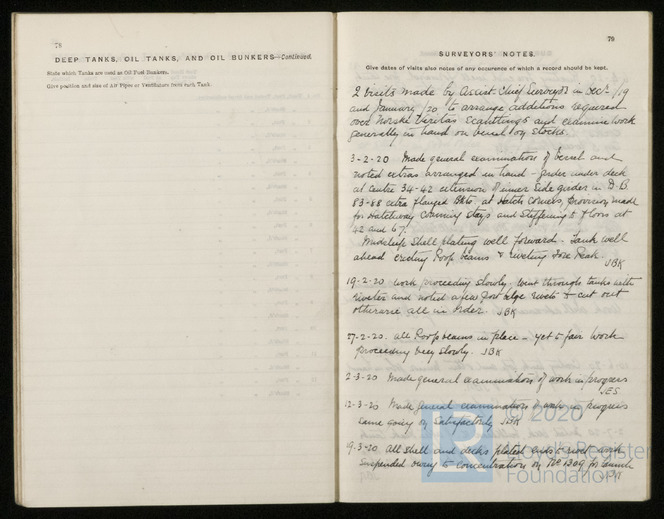 78
DEEP TANKS, OIL TANKS, AND OIL BUNKERS—Continued.
State which Tanks are used as Oil Fuel Bunkers.
Give position and size of Air Pipes or Ventilators from each Tank.
79
SURVEYORS' NOTES.
Give dates of visits also notes of any occurence of which a record should be kept.
2 visits made by Assist. Chief Surveyor in Decr /19
and January /20 to arrange additions required
over Norske Veritas Scantlings and examine work
generally in hand on vessel on stocks.
3-2-20 Made general examination of vessel and
noted extras arranged in hand - girder under deck
at centre 34-42 extension of inner side girder in D.B.
83-88 extra flanged at Hatch corners, made
for Hatchway Coaming stays and stiffening to floors at
42 and 67.
Midship shell plating well forward - Tank well
ahead erecting Poop beams & riveting Fore Peak. JBK
19-2-20 work proceeding slowly, went through tanks with
riveter and noted a few rivets to cut out
otherwise all in order. JBK
27-2-20. all Poop beams in place - yet to fair work
proceeding very slowly. JBK
2-3-20 Made general examination of work in progress
JES
12-3-20 Made general examination of work in progress
same going on satisfactorily JBK
19-3-20. All shell and decks plated and work
suspended owing to concentration on No 1309 for launch
JBK
© 2020
Lloyd's Register
Foundation